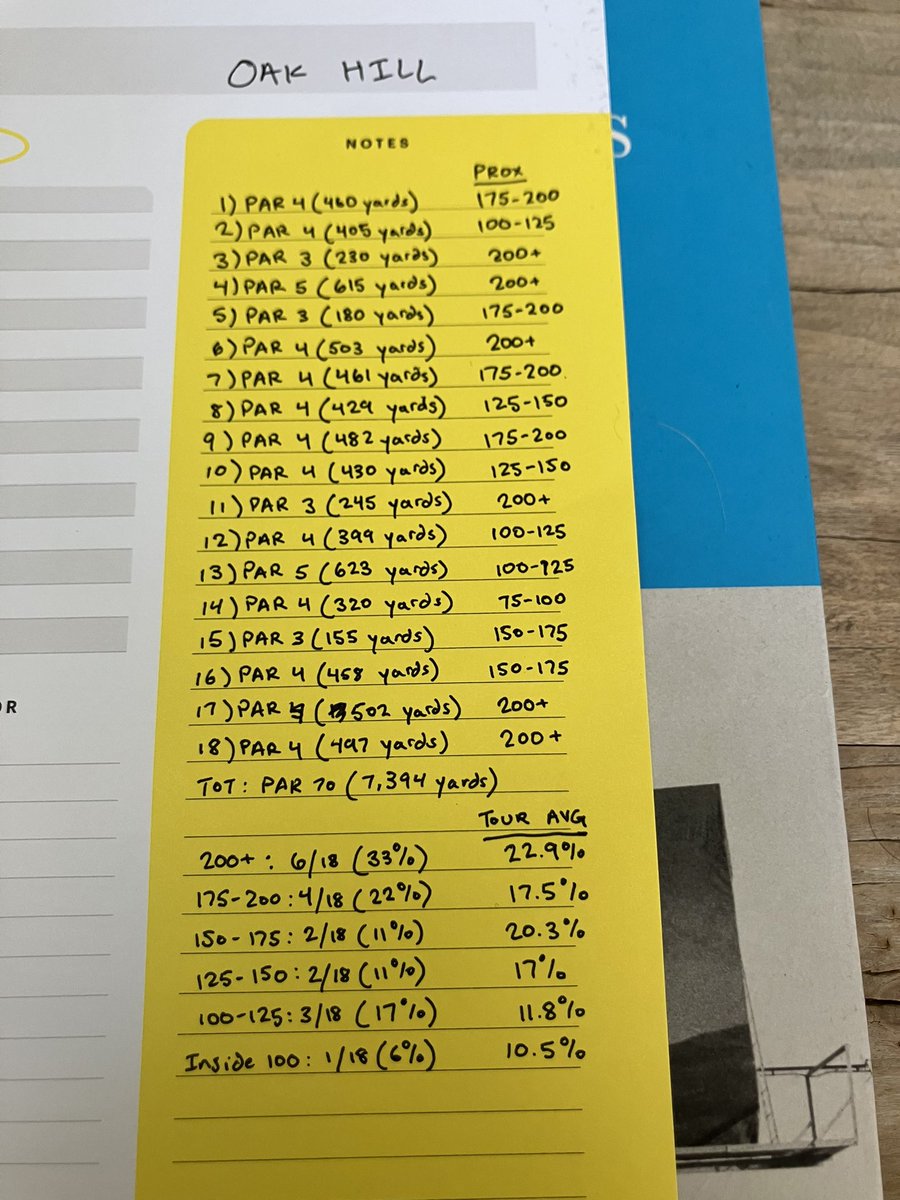 OAK HILL
S
NOTES
PROX
1) PAR 4 (460 yards) 175-200
2) PAR 4 (405 yards) 100-125
3) PAR 3 (230 yards) 200+
4) PAR 5 (615 yards) 200+
5) PAR 3 (180 yards) 175-200
6) PAR 4 (503 yards) 200+
7) PAR 4 (461 yards) 175-200
8) PAR 4 (429 yards) 125-150
9) PAR 4 (482 yards) 175-200
10) PAR 4 (430 yards) 125-150
11) PAR 3 (245 yards) 200+
12) PAR 4 (399 yards) 100-125
13) PAR 5 (623 yards) 100-125
14) PAR 4 (320 yards) 75-100
15) PAR 3 (155 yards) 150-175
16) PAR 4 (458 yards) 150-175
17) PAR 4 (502 yards) 200+
OR
18) PAR 4 (497 yards) 200+
TOT: PAR 70 (7,394 yards)
TOUR AVG
200+: 6/18 (33%) 22.9%
175-200: 4/18 (22%) 17.5%
150-175: 2/18 (11%) 20.3%
125-150: 2/18 (11%) 17%
100-125: 3/18 (17%) 11.8%
Inside 100: 1/18 (6%) 10.5%